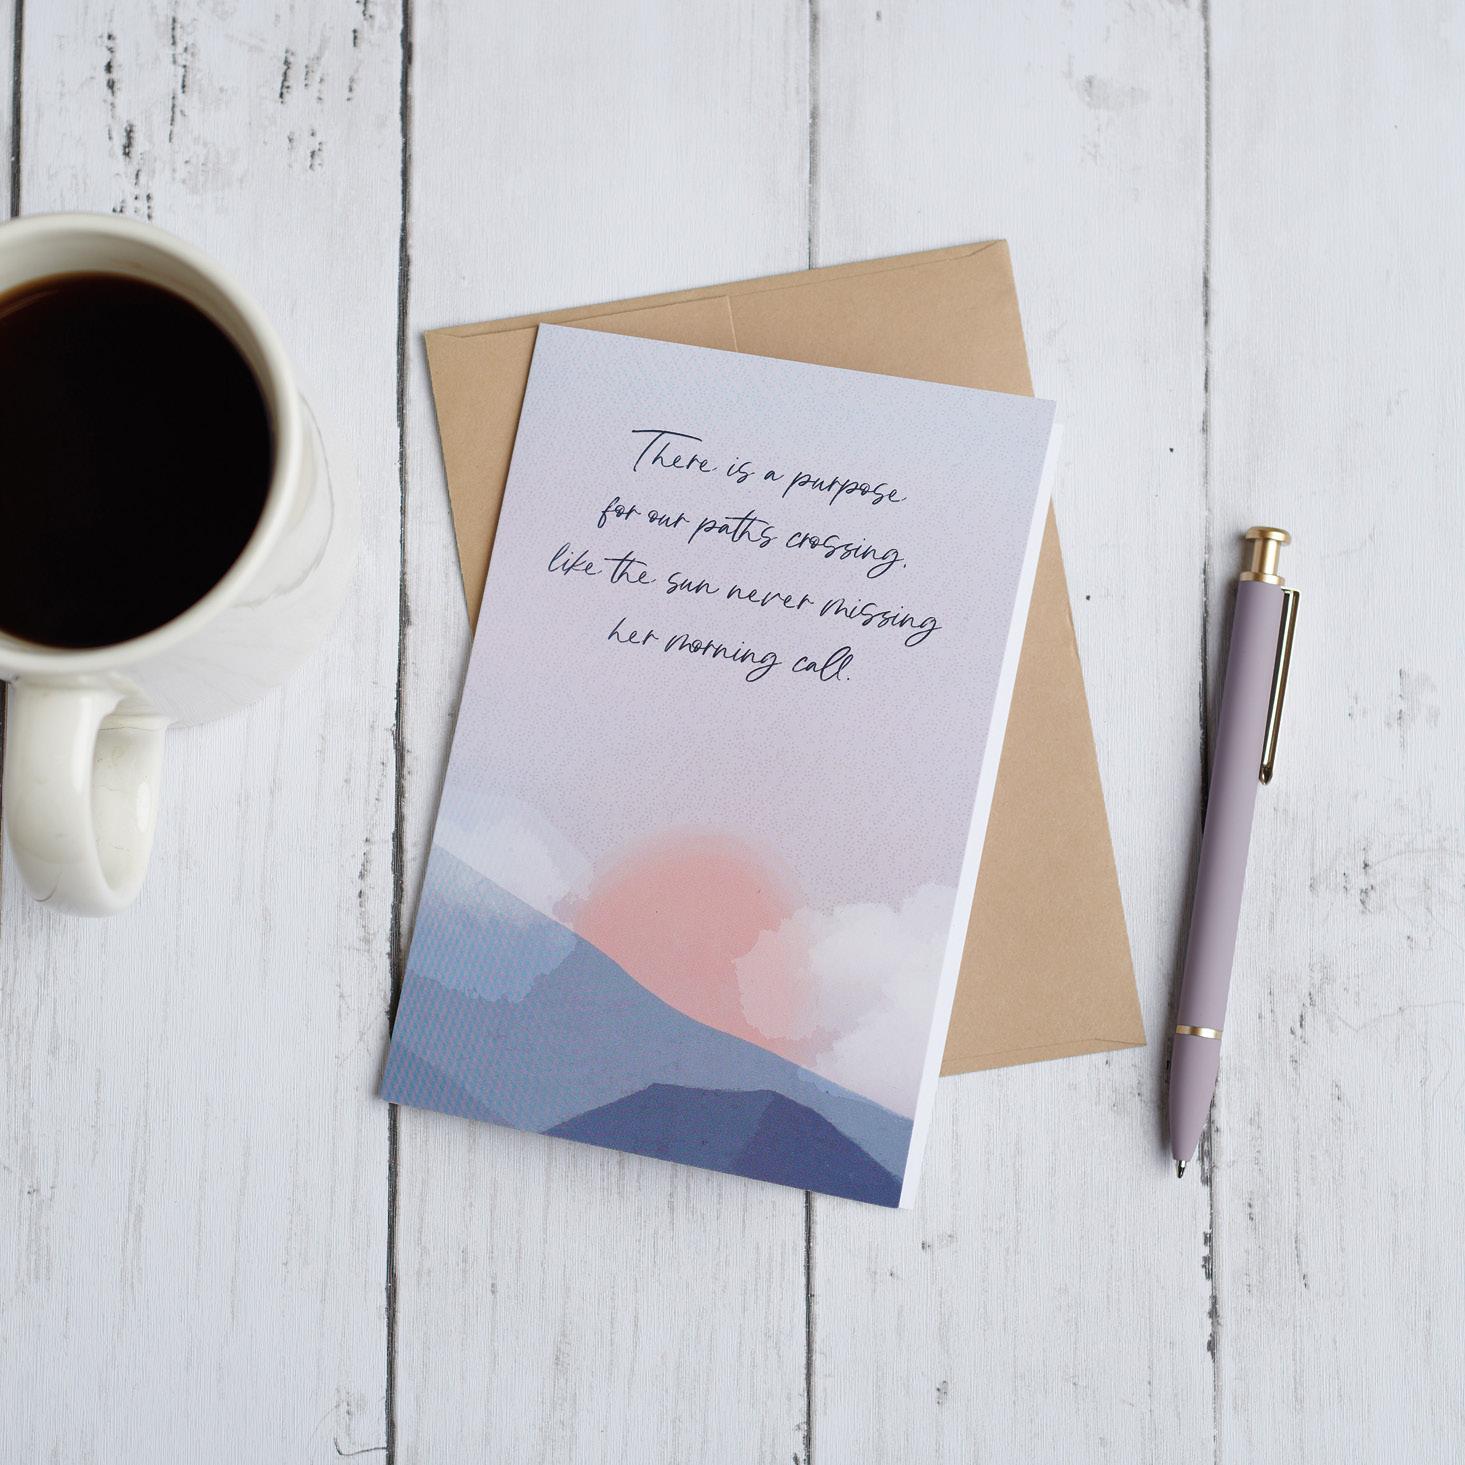 There is a purpose
for our paths crossing,
like the sun never missing
her morning call.